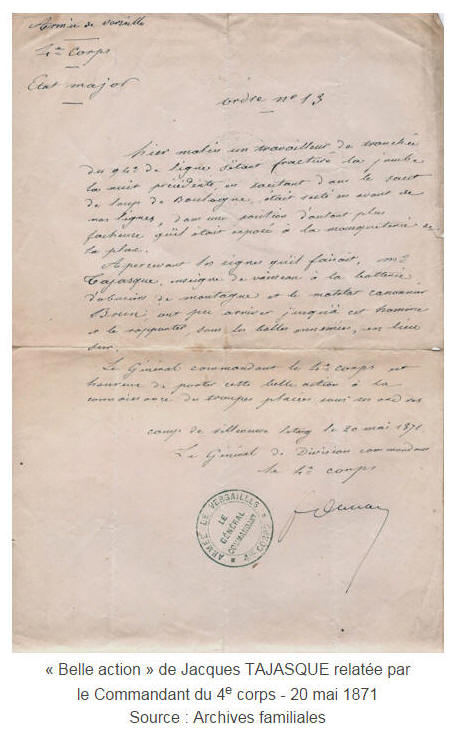 Armée de Versailles
4e Corps
Etat major
ordre no 13
hier matin un travailleur de tranchée
du 94e de ligne s'étant fracturé la jambe
la nuit précédente en sautant dans le saut
de loup de Boulogne, était resté en avant de
nos lignes, dans une position d'autant plus
facheuse qu'il était exposé à la mousqueterie de
la place.
Apercevant les signes qu'il faisait, mr
Tajasque, enseigne de vaisseau à la batterie
d'obusiers de montagne et le matelot canonnier
ont pu arriver jusqu'à cet homme
et le rapporter sous les balles ennemies, en lieu
sur.
Le Général commandant le 4e corps est
heureux de porter cette belle action à la
connaissance des troupes placées sous ses ordres
camp de villeneuve l'etang le 20 mai 1871
Le Général de Division commandant
le 4e corps
ARMÉE DE VERSAILLES
4e CORPS
LE
GÉNÉRAL
COMMANDANT
« Belle action » de Jacques TAJASQUE relatée par
le Commandant du 4e corps - 20 mai 1871
Source : Archives familiales